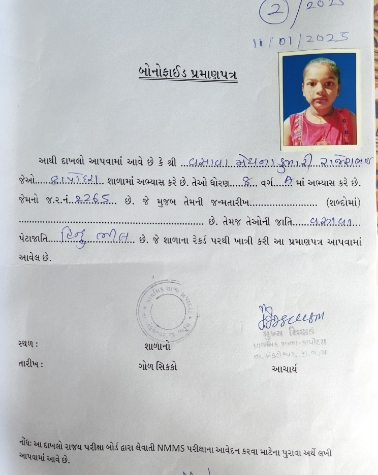 2/2025
11/01/2025
બોનોફાઈડ પ્રમાણપત્ર
આથી દાખલો આપવામાં આવે છે કે શ્રી વસાવા મેઘનાકુમારી રાજેશભાઈ
જેઓ શાળામાં અભ્યાસ કરે છે. તેઓ ધોરણ 8 વર્ગ A માં અભ્યાસ કરે છે.
જેમનો જ.ર.નં. 2265 છે. જે મુજબ તેમની જન્મતારીખ (શબ્દોમાં)
છે. તેમજ તેઓની જાતિ વસાવા
પેટાજાતિ હિન્દુ ભીલ છે. જે શાળાના રેકર્ડ પરથી ખાત્રી કરી આ પ્રમાણપત્ર આપવામાં
આવેલ છે.
સ્થળ : શાળાનો
મુખ્ય શિક્ષક
તારીખ : ગોળ સિક્કો આચાર્ય
નોંધ: આ દાખલો રાજ્ય પરીક્ષા બોર્ડ દ્વારા લેવાતી NMMS પરીક્ષાના આવેદન કરવા માટેના પુરાવા અર્થે લખી
આપવામાં આવે છે.